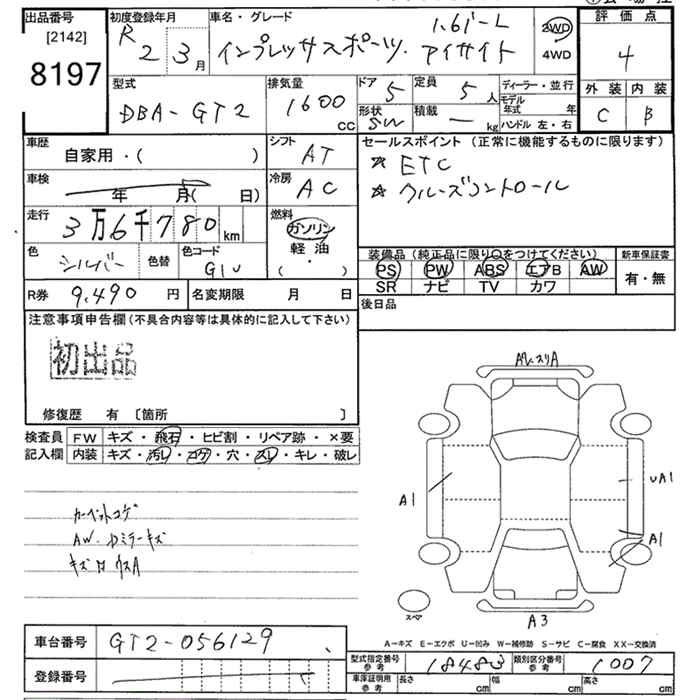 出品番号
[2142]
8197
初度登録年月
R 2 3 月
車名・グレード
インプレッサスポーツ. 1.6i-L アイサイト
2WD
4WD
評価点
4
外装 内装
C B
型式
DBA-GT2
排気量
1600 cc
ドア 5
形状 SW
定員 5 人
積載 — kg
ディーラー・並行
モデル年式 年
ハンドル 左・右
車歴
自家用・( )
シフト AT
車検
年 月( 日)
冷房 AC
走行
3万6千780 km
燃料
ガソリン
軽油
( ・ )
色 シルバー 色替
色コード G1U
R券 9,490 円
名変期限 月 日
セールスポイント (正常に機能するものに限ります)
★ ETC
★ クルーズコントロール
装備品 (純正品に限り○をつけてください)
PS PW ABS エアB AW
SR ナビ TV カワ
新車保証書
有・無
後日品
注意事項申告欄 (不具合内容等は具体的に記入して下さい)
初出品
修復歴 有 〔箇所 〕
検査員記入欄
FW キズ・飛石・ヒビ割・リペア跡・×要
内装 キズ・汚レ・コゲ・穴・スレ・キレ・破レ
カーペットコゲ
AW. Dミラーキズ
A1
UA1
A1
スペア
A3
A-キズ E-エクボ U-凹み W-補修跡 S-サビ C-腐食 XX-交換済
車台番号 GT2-056129
登録番号
型式指定番号 参考 18483
類別区分番号 参考 1007
車庫証明用 参考 長さ cm 幅 cm 高さ cm